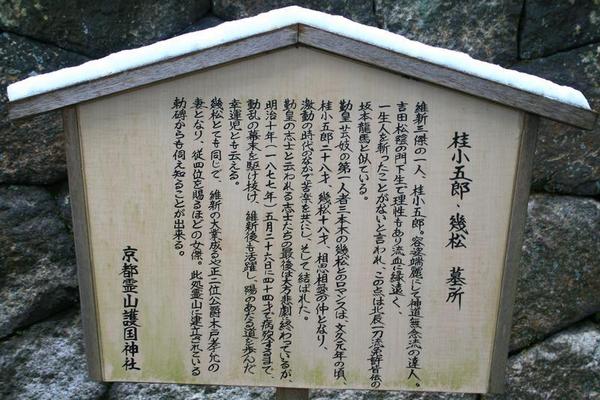 桂小五郎・幾松 墓所
維新三傑の一人、桂小五郎。容姿端麗にして神道無念流の達人。
吉田松陰の門下生で理性もあり流血に縁遠く、
一生人を斬ったことがないと言われ、この点は北辰一刀流免許皆伝の
坂本龍馬と似ている。
勤皇芸妓の第一人者三本木の幾松とのロマンスは、文久元年の頃、
桂小五郎二十八才、幾松十八才、相思相愛の仲となり、
激動の時代のなかで苦楽を共にし、そして結ばれた。
勤皇の志士と云われる志士たちの最後は大方悲劇で終わっているが、
明治十年(一八七七年)五月二十六日に四十四才で病歿するまで、
動乱の幕末を駆け抜け、維新後も活躍し、陽のあたる道を歩んだ
幸運児とも云える。
幾松とても同じで、維新の大業成るや正二位公爵木戸孝允の
妻となり、従四位を賜るほどの女傑。此処霊山に建立されている
勅碑からも伺え知ることが出来る。
京都霊山護国神社